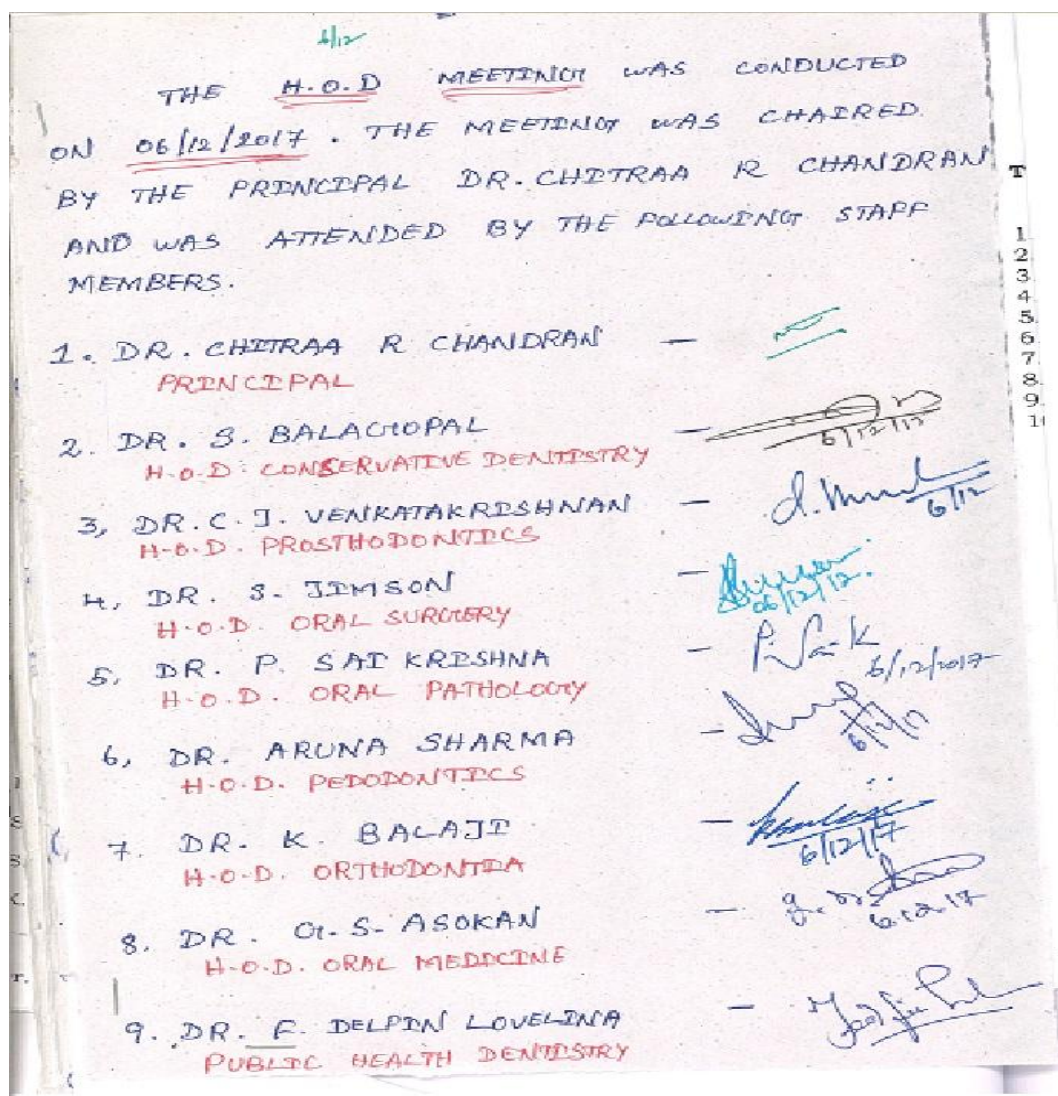 6/12
THE H.O.D MEETING WAS CONDUCTED
ON 06/12/2017. THE MEETING WAS CHAIRED
BY THE PRINCIPAL DR. CHITRAA R CHANDRAN
AND WAS ATTENDED BY THE FOLLOWING STAFF
MEMBERS.
1. DR. CHITRAA R CHANDRAN —
PRINCIPAL
2. DR. S. BALAGOPAL — 6/12/17
H.O.D. CONSERVATIVE DENTISTRY
3, DR. C. J. VENKATAKRISHNAN — 6/12
H.O.D. PROSTHODONTICS
4, DR. S. JIMSON — 06/12/12.
H.O.D. ORAL SURGERY
5, DR. P. SAI KRISHNA — P. Sai K 6/12/2017
H.O.D. ORAL PATHOLOGY
6, DR. ARUNA SHARMA — 6/12/17
H.O.D. PEDODONTICS
7. DR. K. BALAJI — 6/12/17
H.O.D. ORTHODONTIA
8. DR. G. S. ASOKAN — 6.12.17
H.O.D. ORAL MEDICINE
9. DR. F. DELPIN LOVELINA —
PUBLIC HEALTH DENTISTRY
T
1.
2.
3.
4.
5.
6.
7.
8.
9.